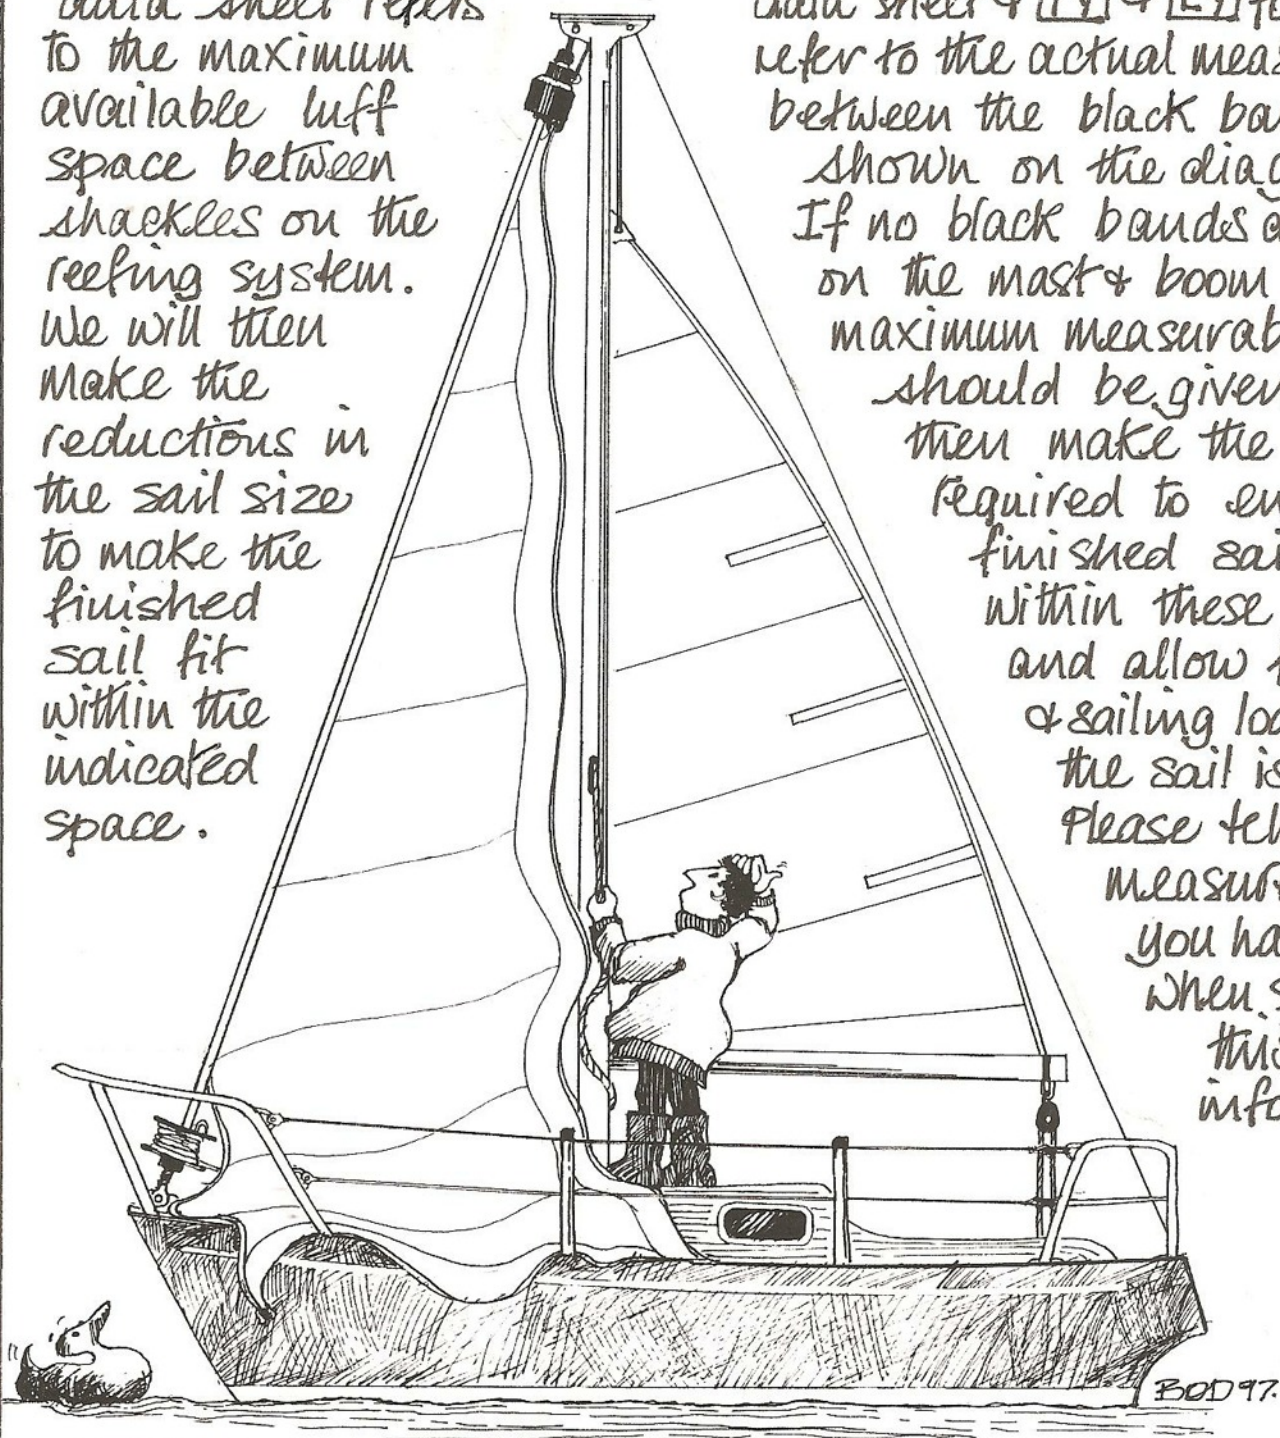 data sheet refers
to the maximum
available luff
space between
shackles on the
reefing system.
We will then
make the
reductions in
the sail size
to make the
finished
sail fit
within the
indicated
space.
data sheet &
refer to the actual
between the black
shown on the
If no black bands
on the mast & boom
maximum
should be given
then make the
required to
finished
within these
and allow
& sailing
the sail is
Please
you
when
BOD 97.